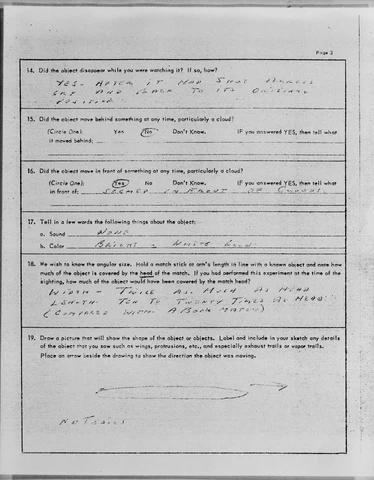 Page 3
14. Did the object disappear while you were watching it? If so, how?
YES - AFTER IT HAD SHOT ACROSS
SKY AND BACK TO ITS ORIGINAL
POSITION
15. Did the object move behind something at any time, particularly a cloud?
(Circle One): Yes No Don't Know. IF you answered YES, then tell what
it moved behind:
16. Did the object move in front of something at any time, particularly a cloud?
(Circle One): Yes No Don't Know. IF you answered YES, then tell what
in front of: SEEMED IN FRONT OF CLOUDS.
17. Tell in a few words the following things about the object:
a. Sound NONE
b. Color BRIGHT - WHITE
18. We wish to know the angular size. Hold a match stick at arm's length in line with a known object and note how
much of the object is covered by the head of the match. If you had performed this experiment at the time of the
sighting, how much of the object would have been covered by the match head?
WIDTH - TWICE AS MUCH AS HEAD
LENGTH - TEN TO TWENTY TIMES AS HEAD
(COMPARED WITH A BOOK MATCH)
19. Draw a picture that will show the shape of the object or objects. Label and include in your sketch any details
of the object that you saw such as wings, protrusions, etc., and especially exhaust trails or vapor trails.
Place an arrow beside the drawing to show the direction the object was moving.
NO TRAILS